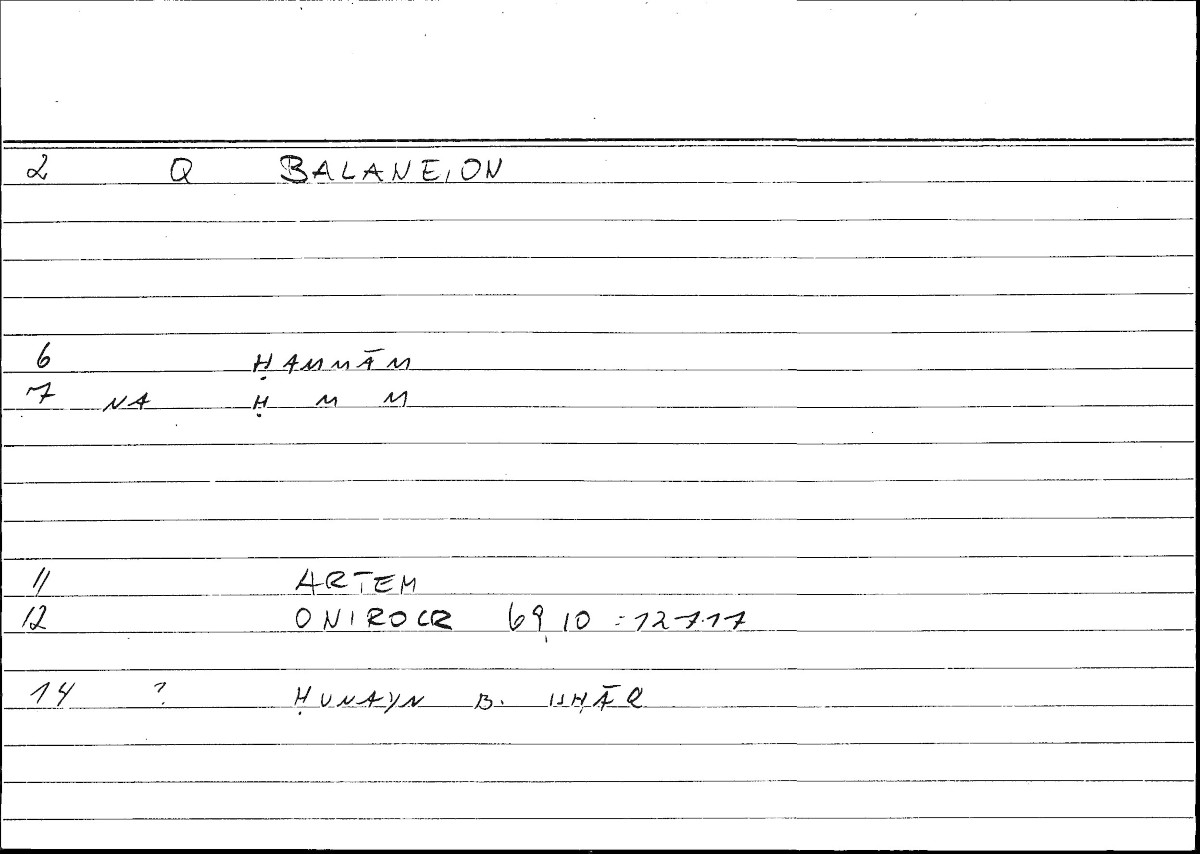 2 Q BALANE,ON
6 ḤAMMĀM
7 NA Ḥ M M
11 ARTEM
12 ONIROCR 69,10 = 127.17
14 ? ḤUNAYN B. ISḤĀQ